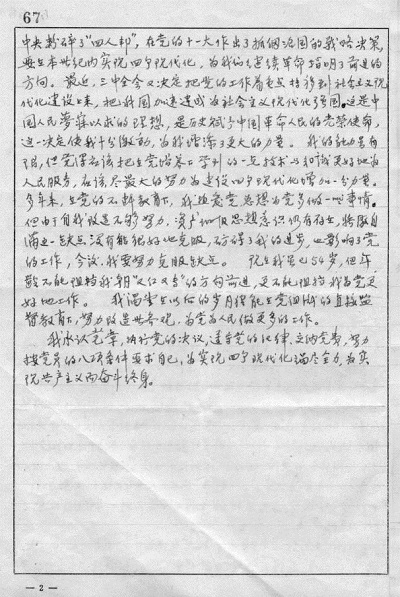 67
中央粉碎了"四人邦"，在党的十一大作出了抓纲治国的战略决策，
要在本世纪内实现四个现代化，为我们继续革命指明了前进的
方向。最近，三中全会又决定把党的工作着重点转移到社会主义现
代化建设上来，把我国加速建成为社会主义现代化强国。这是中
国人民梦寐以求的理想，是历史赋予中国革命人民的光荣使命，
这一决定使我十分激动，为我增添了更大的力量。我的能力是有
限，但觉得应该把在党培养下学到的一点技术和知识更好地为
人民服务，应该尽最大的努力为建设四个现代化增加一分力量。
多年来，在党的不断教育下，我想为党多做一些事情。
但由于自我改造不够努力，资产阶级思想意识仍有存在，特别自
满这一缺点没有能很好地克服，妨碍了我的进步，也影响了党
的工作，今后，我要努力克服缺点。现在我虽已54岁，但年
龄不能阻挡我朝"又红又专"的方向前进，更不能阻挡我为党更
好地工作。我渴望在以后的岁月得能在党组织的直接监
督教育下，努力改造世界观，为党为人民做更多的工作。
我承认党章，执行党的决议，遵守党的纪律，交纳党费，努力
按党员的八项条件要求自己，为实现四个现代化竭尽全力，为实
现共产主义而奋斗终身。
— 2 —